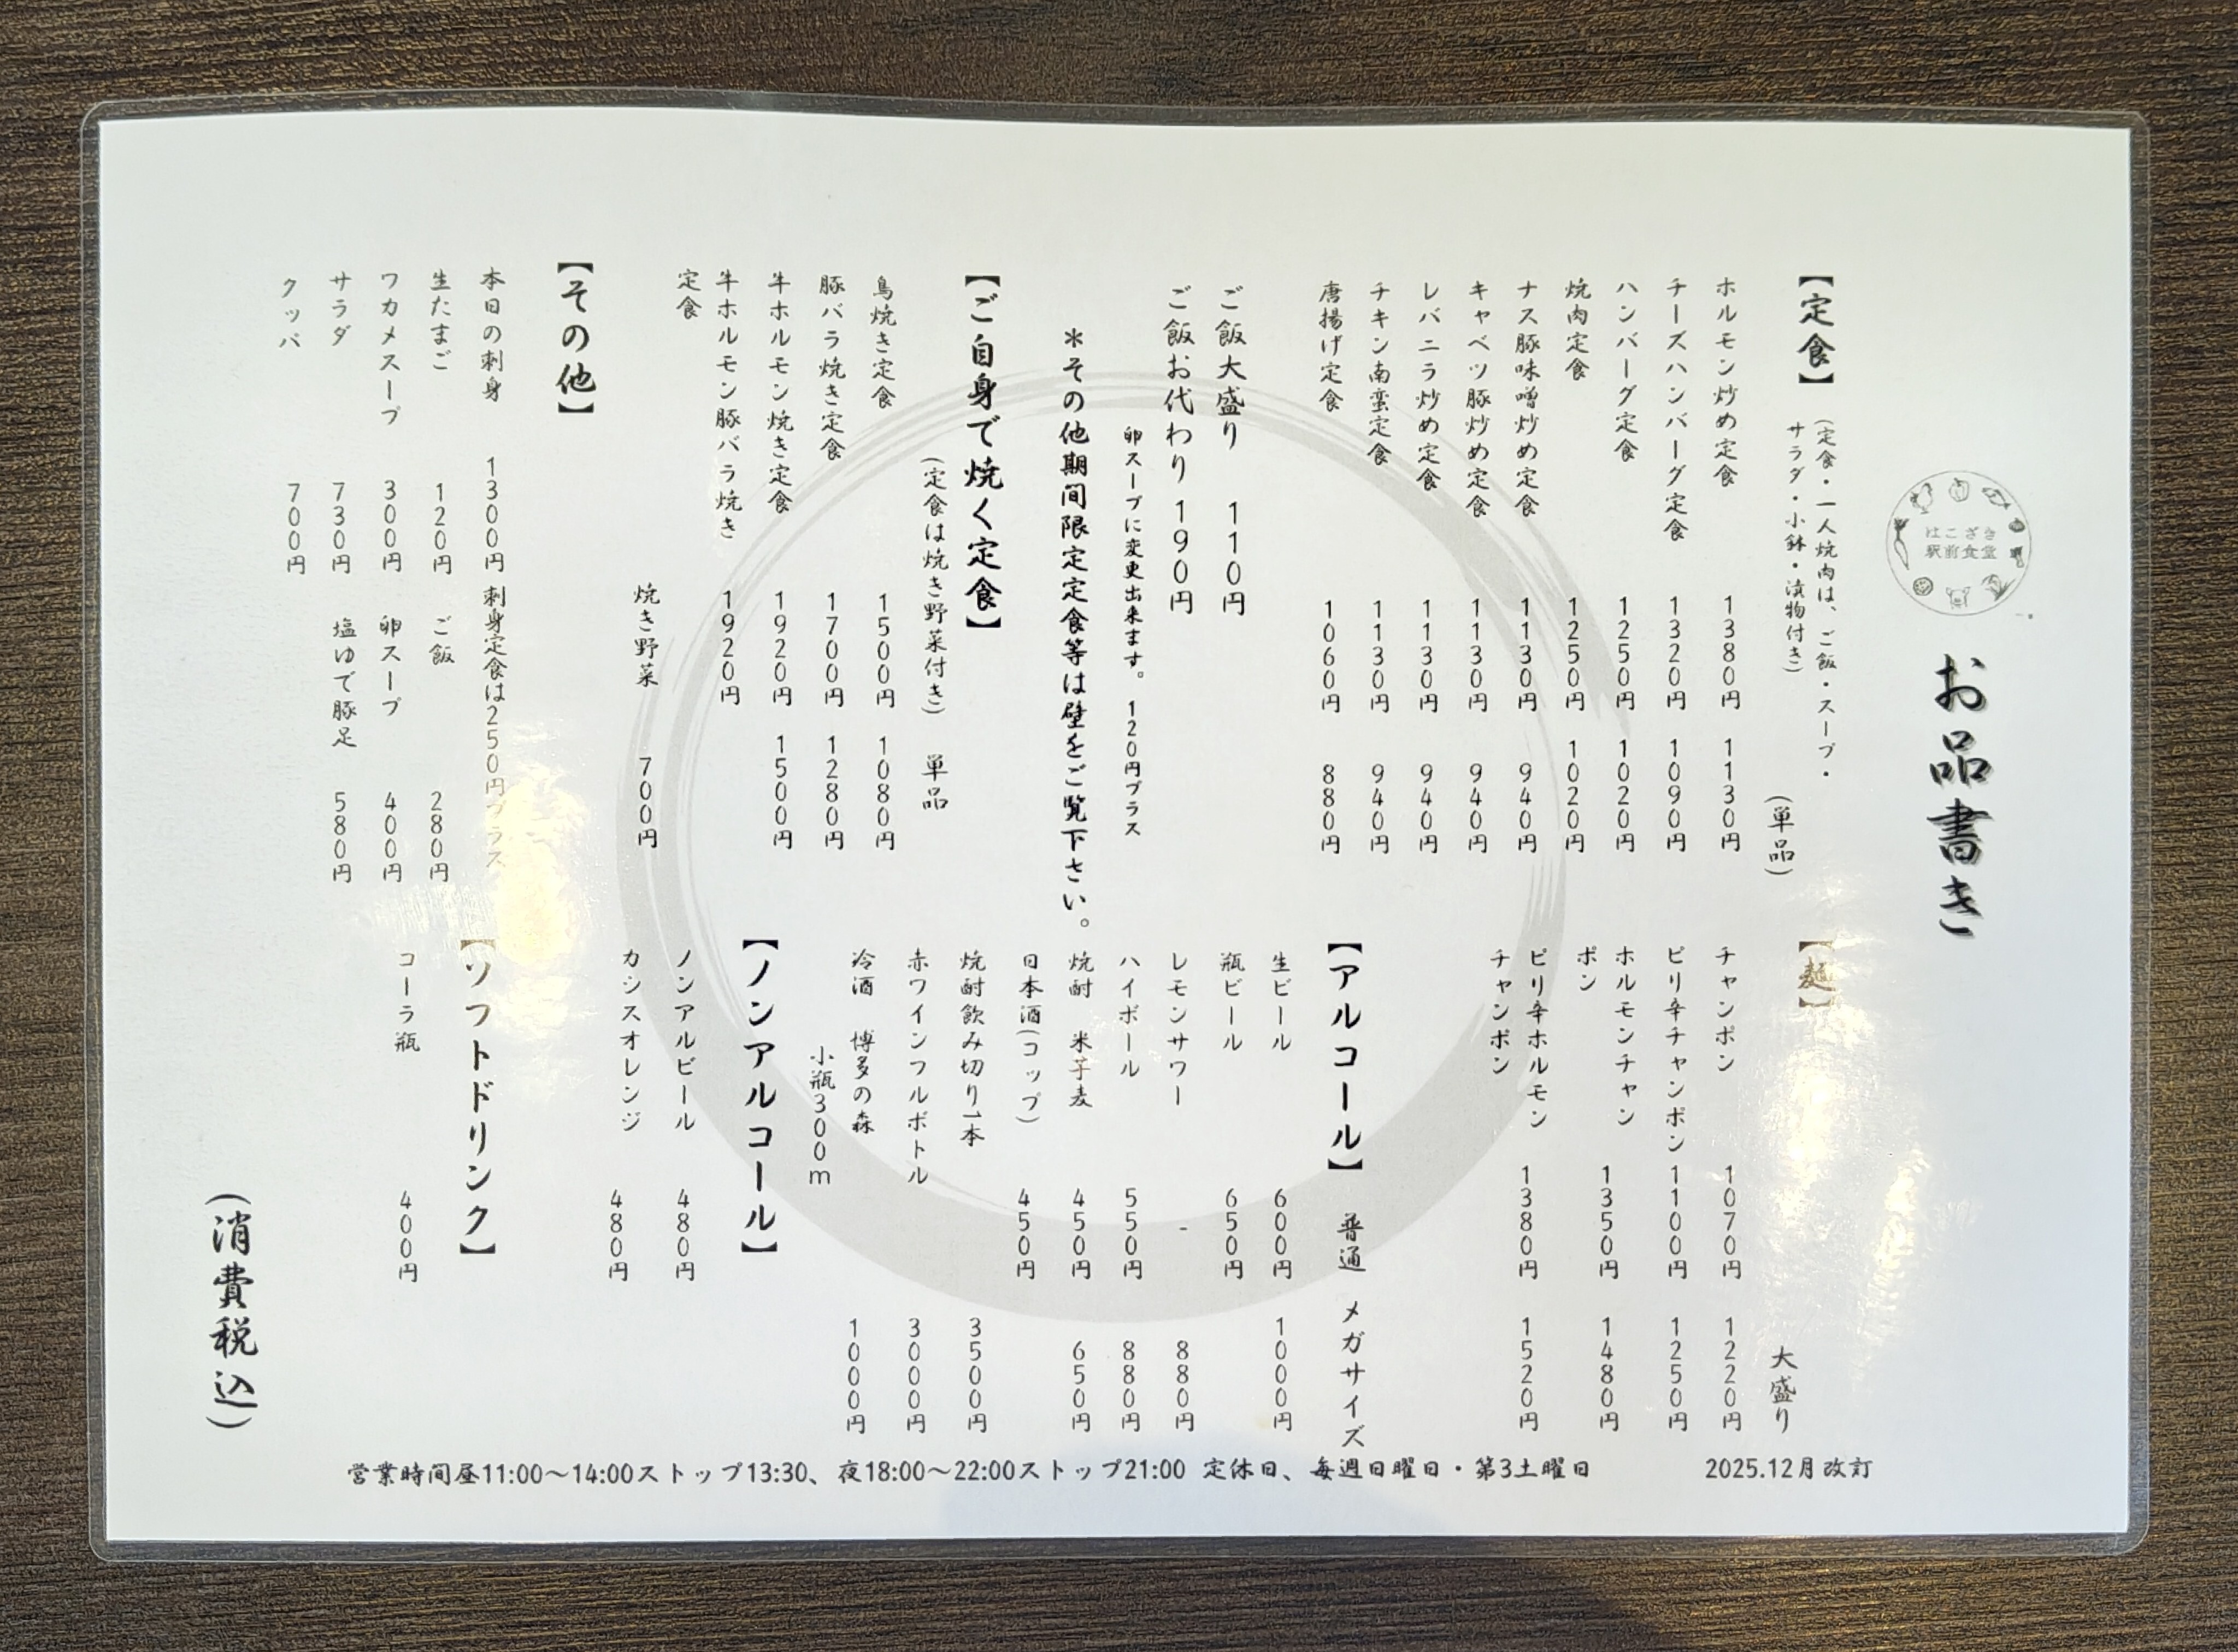 はこざき
駅前食堂
お品書き
【定食】
(定食・一人焼肉は、ご飯・スープ・
サラダ・小鉢・漬物付き)
(単品)
ホルモン炒め定食 1380円 1130円
チーズハンバーグ定食 1320円 1090円
ハンバーグ定食 1250円 1020円
焼肉定食 1250円 1020円
ナス豚味噌炒め定食 1130円 940円
キャベツ豚炒め定食 1130円 940円
レバニラ炒め定食 1130円 940円
チキン南蛮定食 1130円 940円
唐揚げ定食 1060円 880円
ご飯大盛り 110円
ご飯お代わり 190円
卵スープに変更出来ます。120円プラス
*その他期間限定定食等は壁をご覧下さい。
【ご自身で焼く定食】
(定食は焼き野菜付き) 単品
鳥焼き定食 1500円 1080円
豚バラ焼き定食 1700円 1280円
牛ホルモン焼き定食 1920円 1500円
牛ホルモン豚バラ焼き
定食 1920円
焼き野菜 700円
【その他】
本日の刺身 1300円 刺身定食は250円プラス
生たまご 120円 ご飯 280円
ワカメスープ 300円 卵スープ 400円
サラダ 730円 塩ゆで豚足 580円
クッパ 700円
【麺】
大盛り
チャンポン 1070円 1220円
ピリ辛チャンポン 1100円 1250円
ホルモンチャン
ポン 1350円 1480円
ピリ辛ホルモン
チャンポン 1380円 1520円
【アルコール】 普通 メガサイズ
生ビール 600円 1000円
瓶ビール 650円
レモンサワー - 880円
ハイボール 550円 880円
焼酎 米芋麦 450円 650円
日本酒(コップ) 450円
焼酎飲み切り1本 3500円
赤ワインフルボトル 3000円
冷酒 博多の森 1000円
小瓶300m
【ノンアルコール】
ノンアルビール 480円
カシスオレンジ 480円
【ソフトドリンク】
コーラ瓶 400円
(消費税込)
営業時間昼11:00〜14:00ストップ13:30、夜18:00〜22:00ストップ21:00 定休日、毎週日曜日・第3土曜日 2025.12月改訂